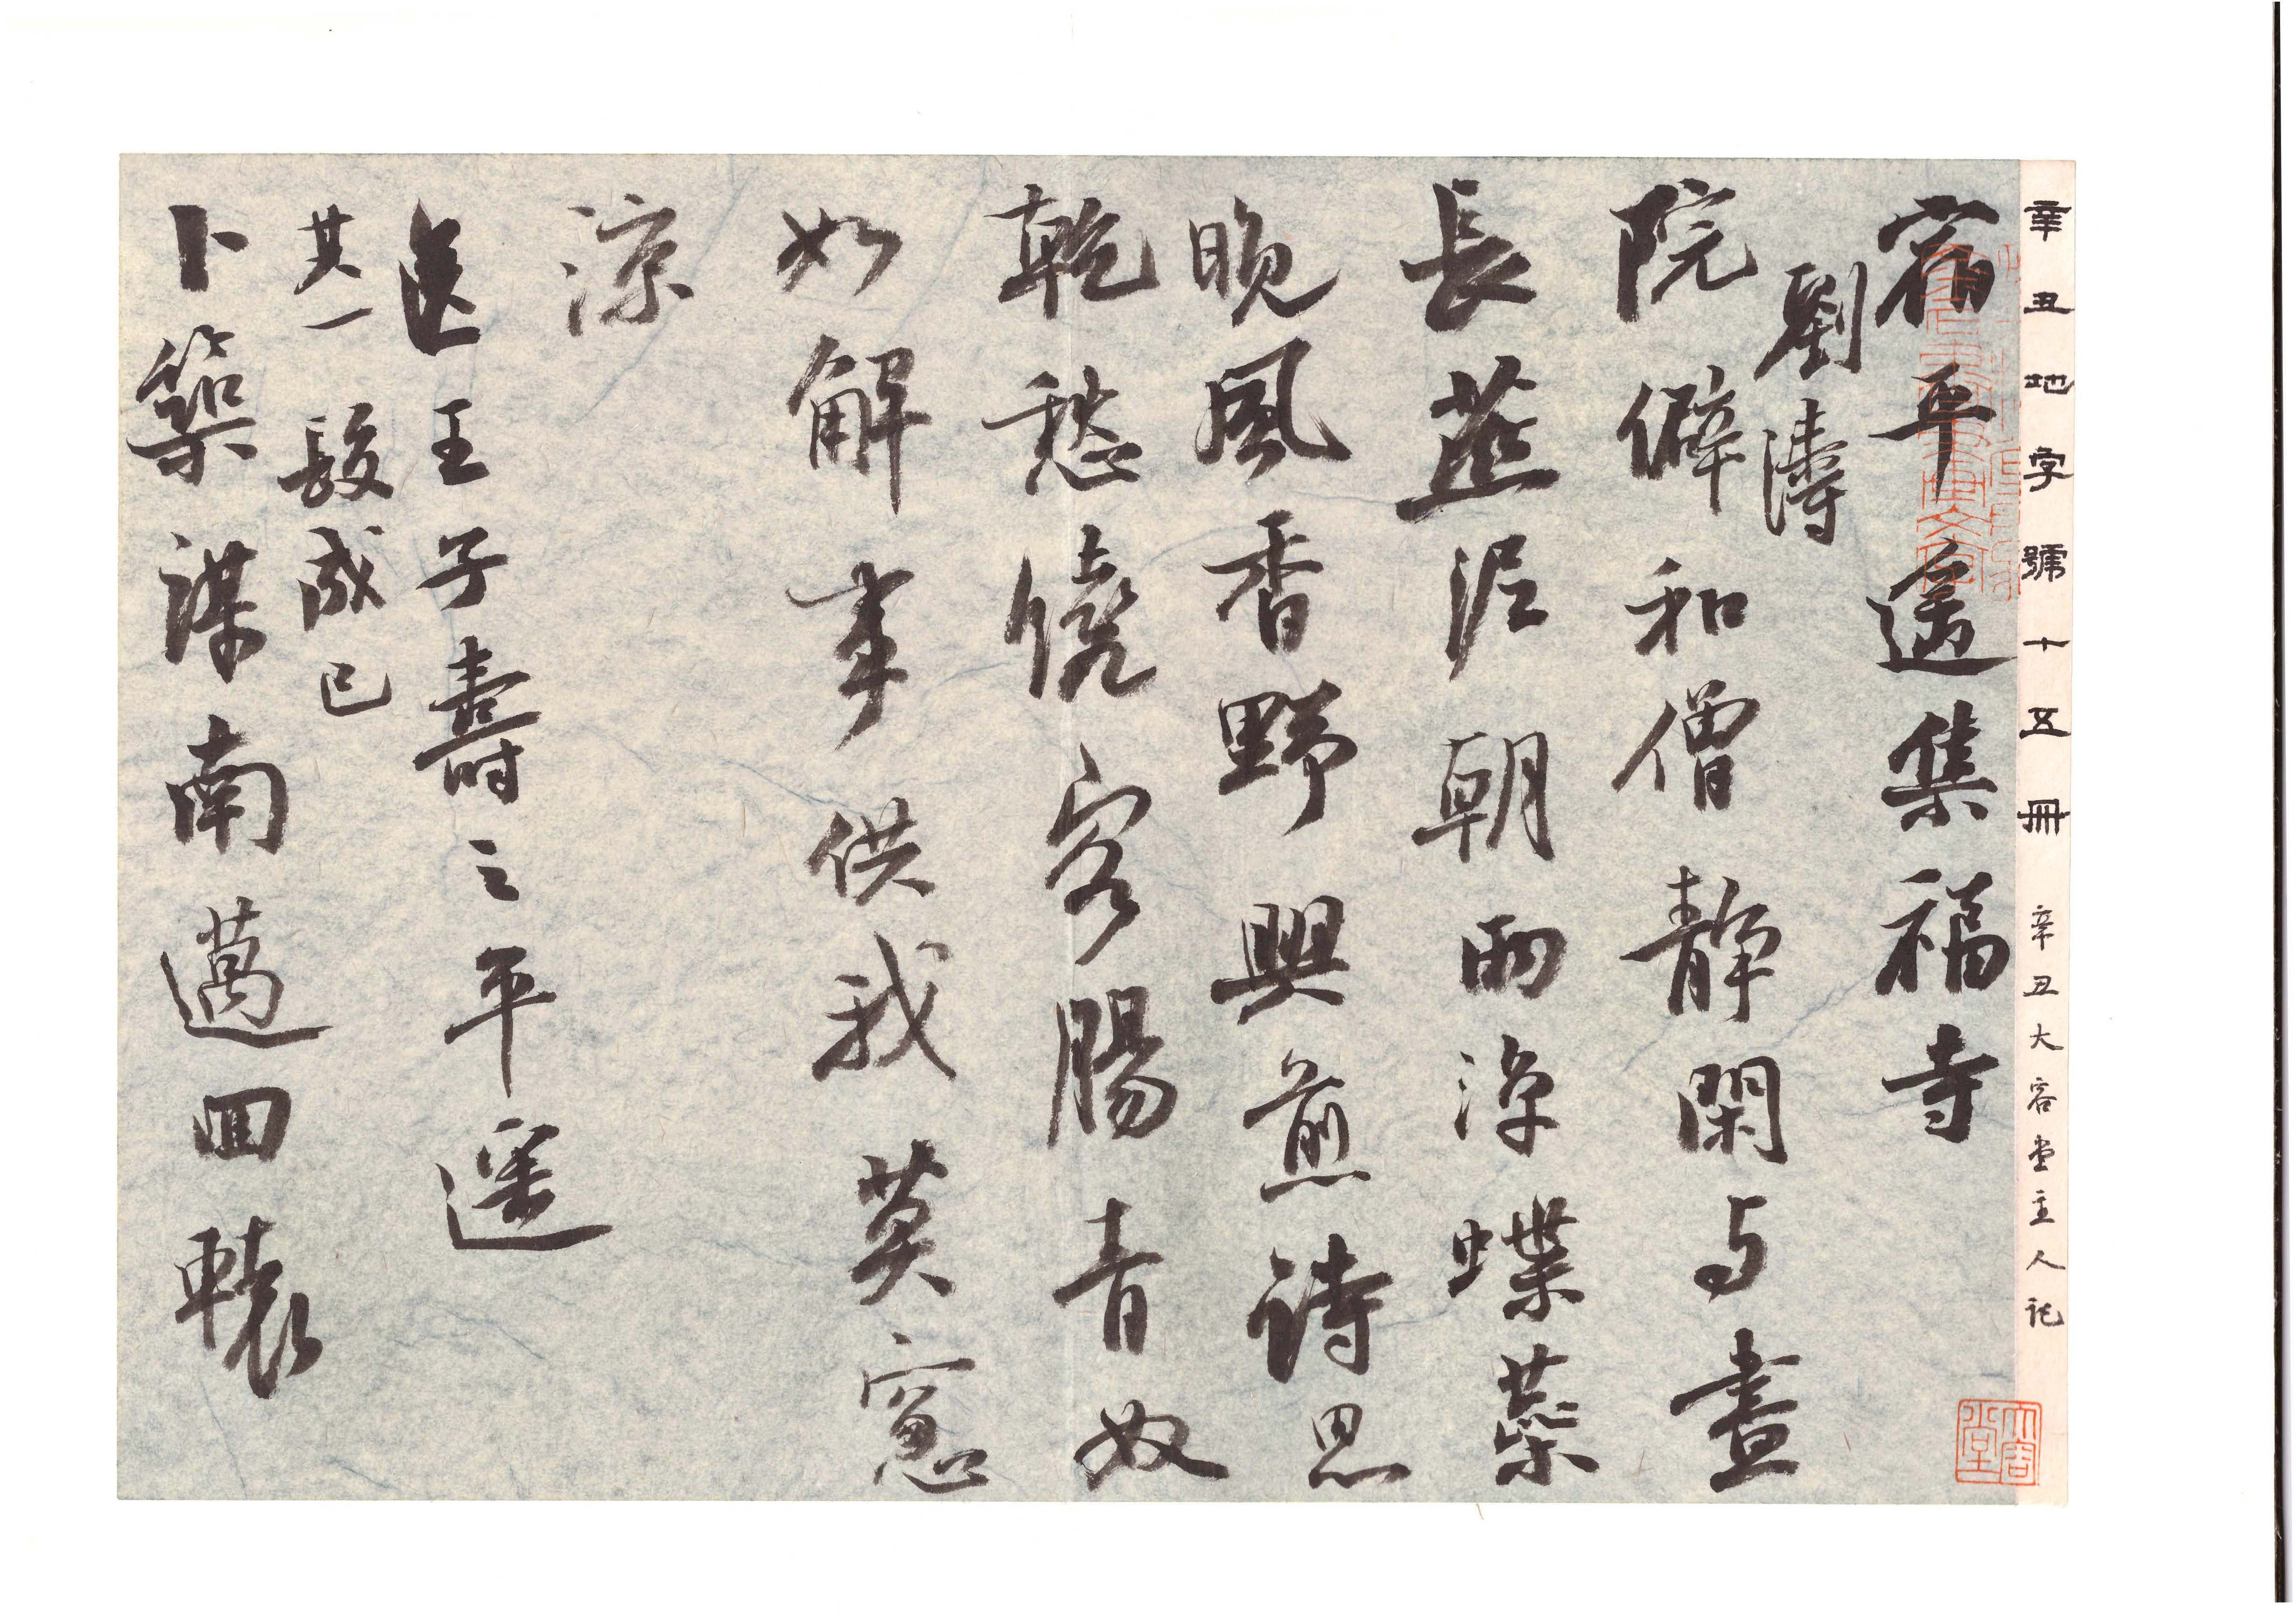 辛丑地字號十五冊 辛丑大容堂主人記
宿平遥集福寺
劉濤
院僻和僧静閑与晝
長燕泥朝雨淨蝶藥
晚風香野興煎詩思
乾愁繞客腸青奴
如解事供我莫窓
涼
送王子壽之平遥
其一 段成已
卜築謀南邁回轅
大容堂